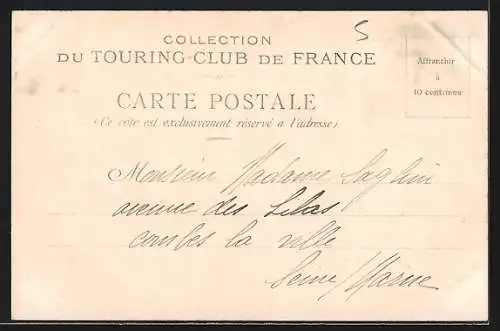 COLLECTION
DU TOURING-CLUB DE FRANCE
5
Affranchir
à
10 centimes
CARTE POSTALE
(Ce côté est exclusivement réservé a l'adresse)
Monsieur Madame
avenue des Lilas
combes la ville
Seine/Marne